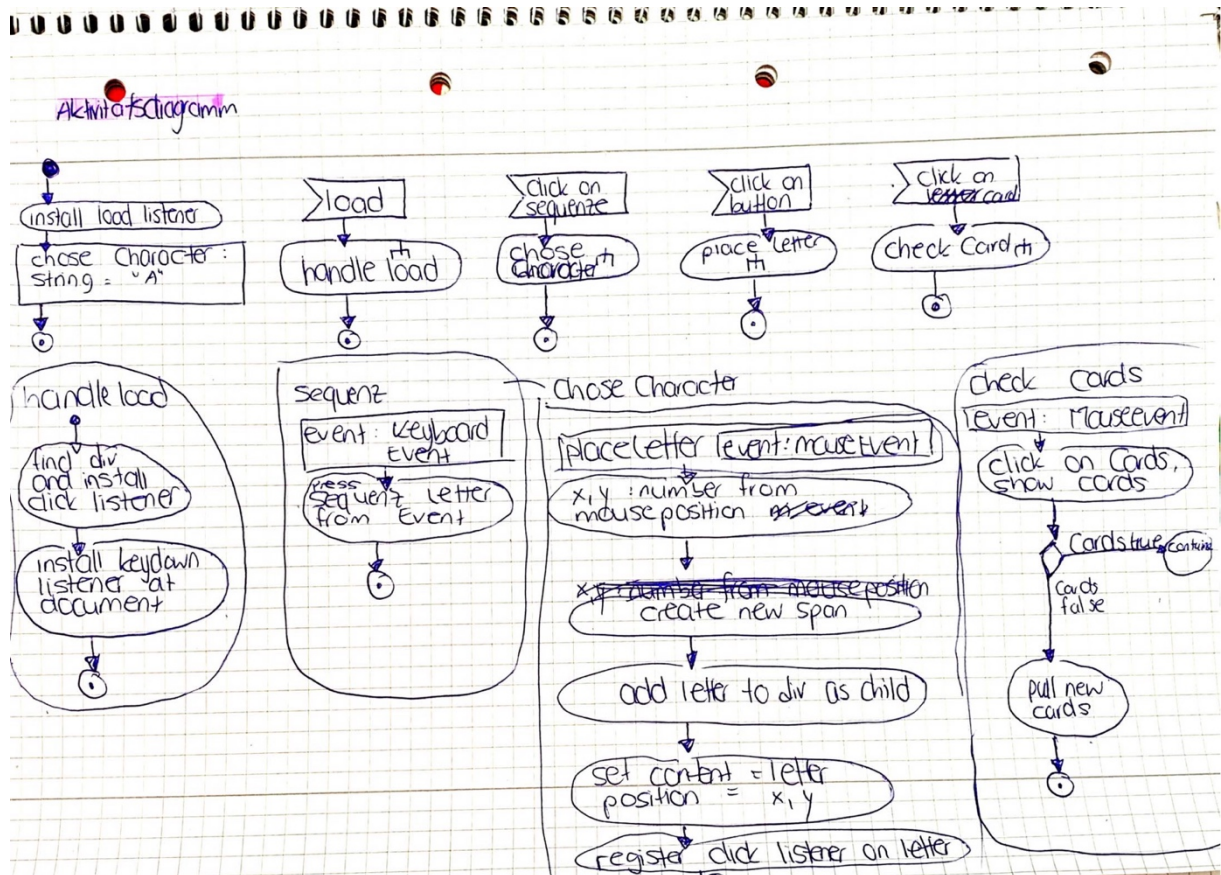 Aktivitätsdiagramm
install load listener
chose Character :
String = "A"
load
handle load
click on
sequenze
chose
Character
click on
button
place letter
click on
card
check Card
handle load
find div
and install
click listener
install keydown
listener at
document
sequenz
event: Keyboard
Event
press
sequenz letter
from Event
Chose Character
placeletter event: mouseEvent
x,y : number from
mouse position event
x,y number from mouse position
create new span
add letter to div as child
set content = letter
position = x, y
register click listener on letter
check Cards
event: Mouseevent
click on Cards,
show cards
Cards true
Cards
false
pull new
cards